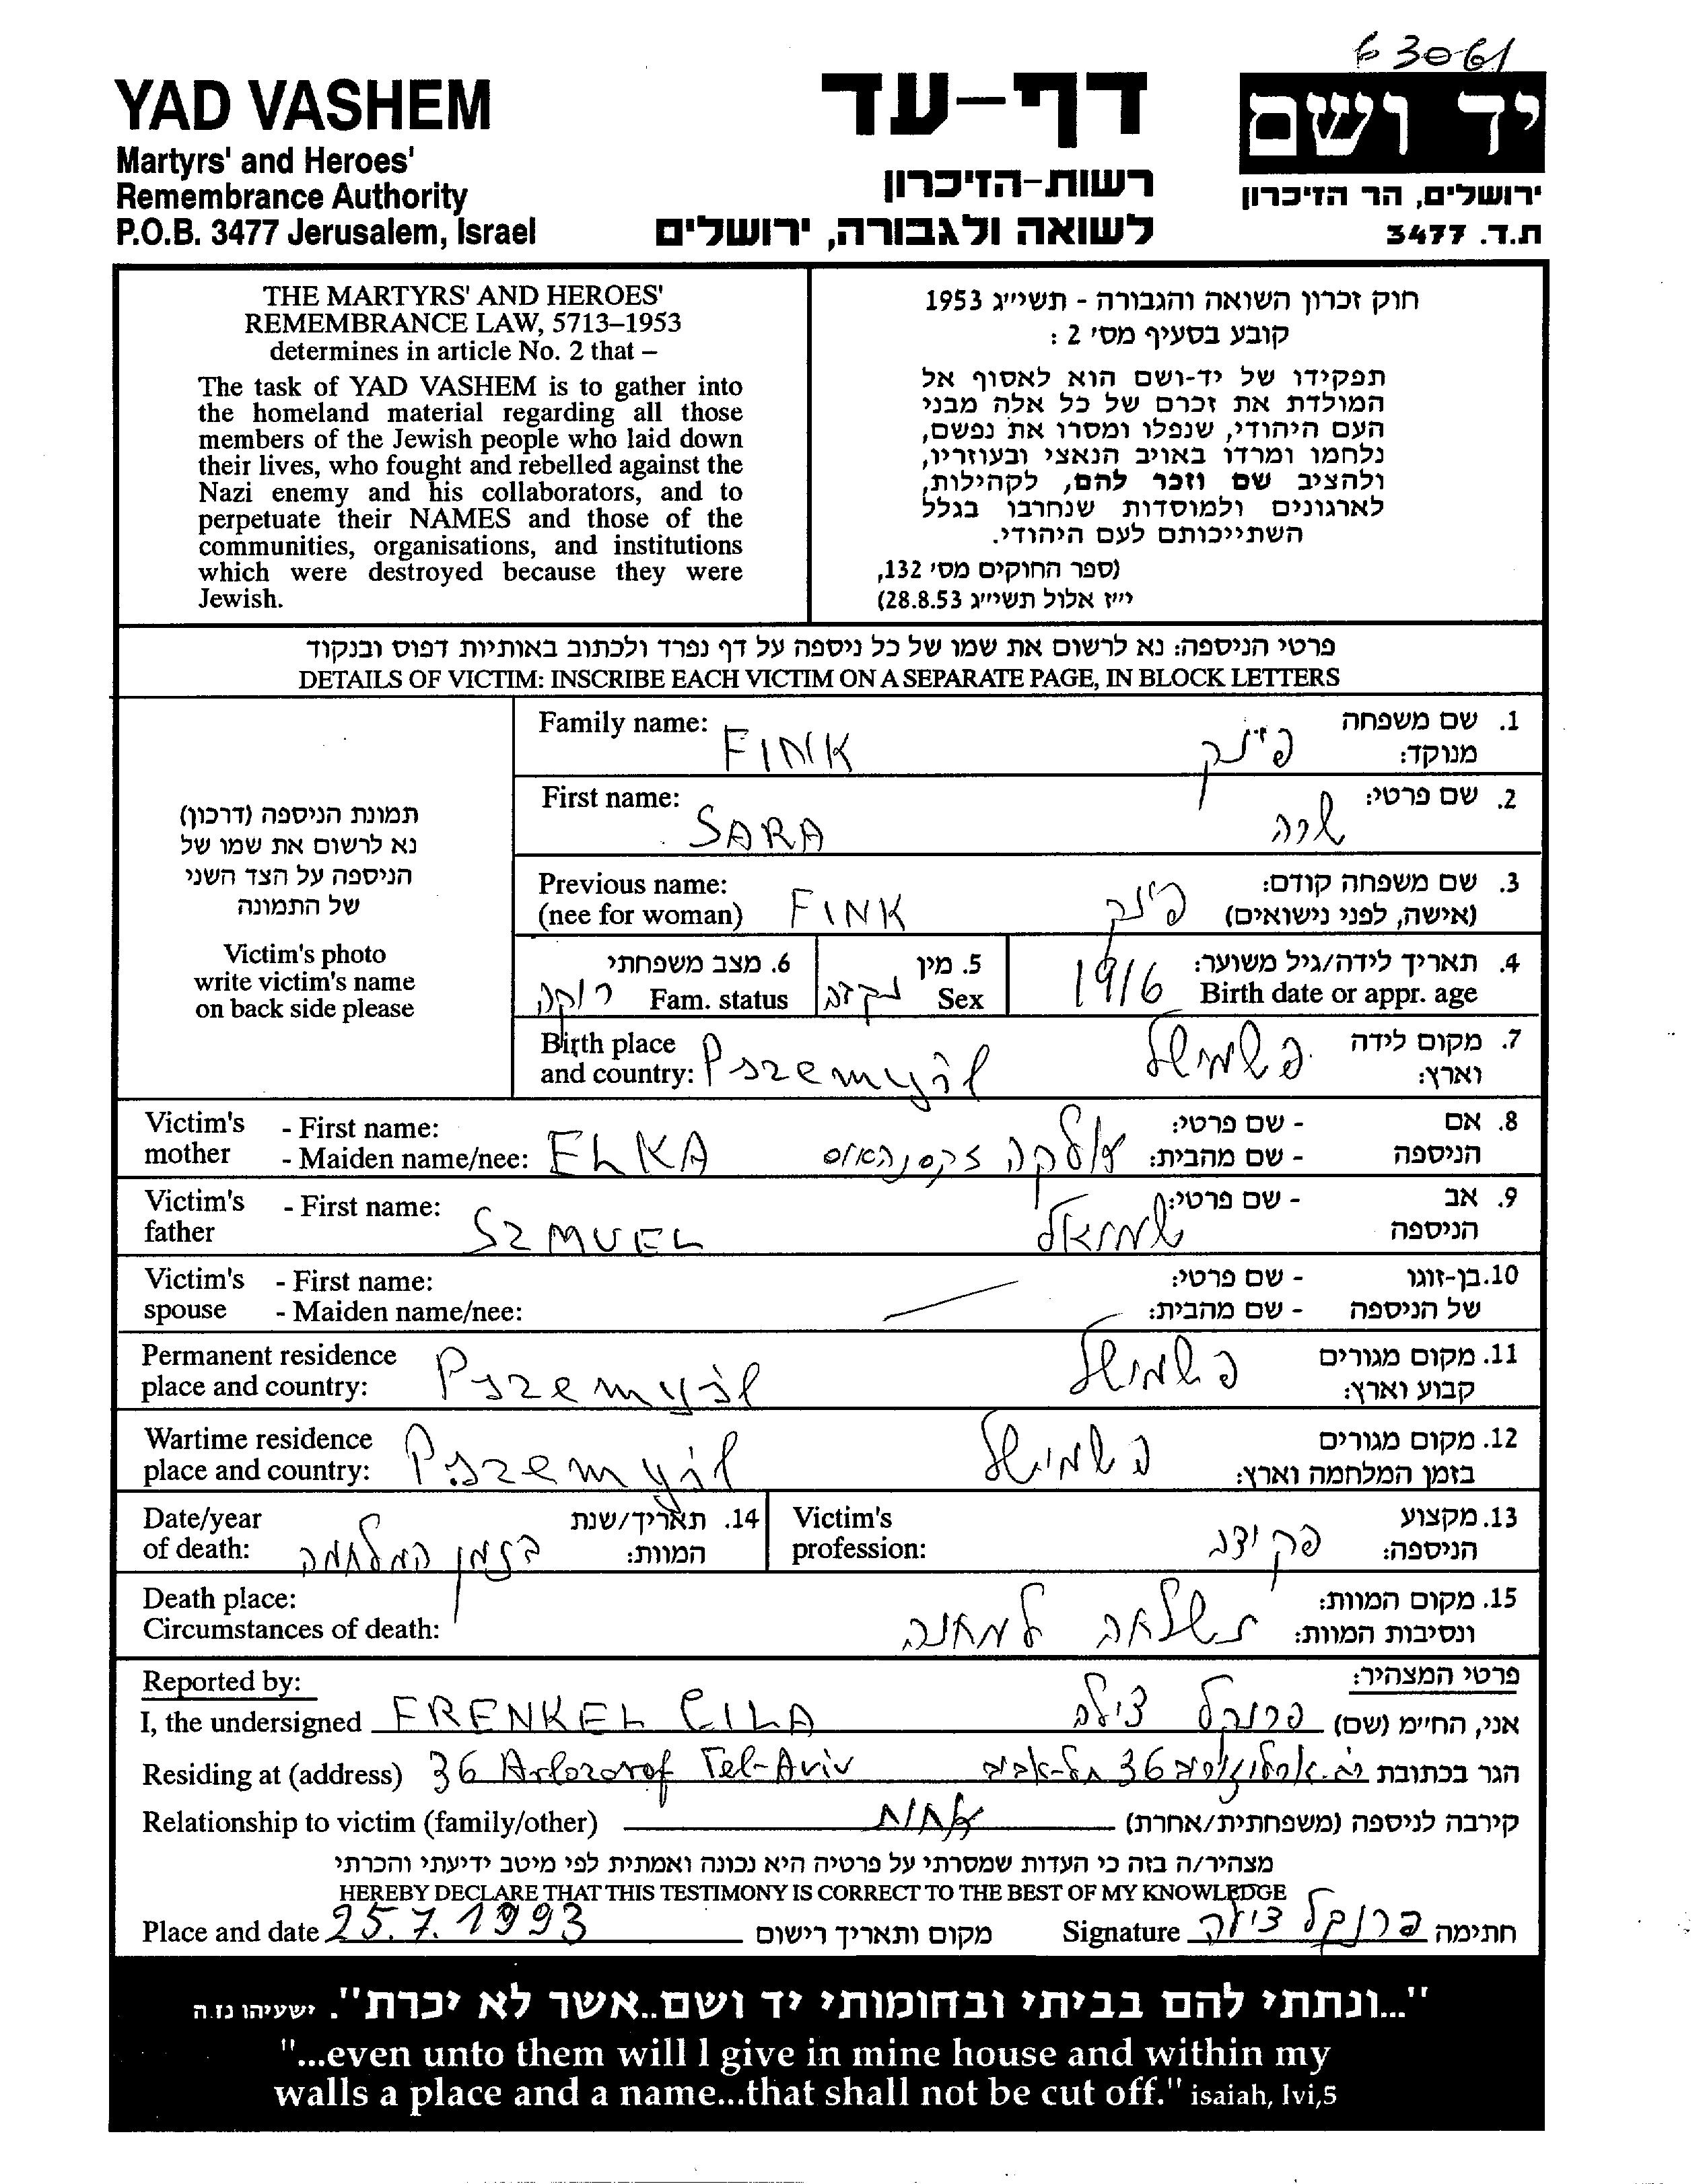 63061
YAD VASHEM
Martyrs' and Heroes'
Remembrance Authority
P.O.B. 3477 Jerusalem, Israel
דף-עד
רשות-הזיכרון
לשואה ולגבורה, ירושלים
יד ושם
ירושלים, הר הזיכרון
ת.ד. 3477
THE MARTYRS' AND HEROES'
REMEMBRANCE LAW, 5713–1953
determines in article No. 2 that –
The task of YAD VASHEM is to gather into
the homeland material regarding all those
members of the Jewish people who laid down
their lives, who fought and rebelled against the
Nazi enemy and his collaborators, and to
perpetuate their NAMES and those of the
communities, organisations, and institutions
which were destroyed because they were
Jewish.
חוק זכרון השואה והגבורה - תשי״ג 1953
קובע בסעיף מס׳ 2 :
תפקידו של יד-ושם הוא לאסוף אל
המולדת את זכרם של כל אלה מבני
העם היהודי, שנפלו ומסרו את נפשם,
נלחמו ומרדו באויב הנאצי ובעוזריו,
ולהציב שם וזכר להם, לקהילות,
לארגונים ולמוסדות שנחרבו בגלל
השתייכותם לעם היהודי.
(ספר החוקים מס׳ 132,
י״ז אלול תשי״ג 28.8.53)
פרטי הניספה: נא לרשום את שמו של כל ניספה על דף נפרד ולכתוב באותיות דפוס ובנקוד
DETAILS OF VICTIM: INSCRIBE EACH VICTIM ON A SEPARATE PAGE, IN BLOCK LETTERS
תמונת הניספה (דרכון)
נא לרשום את שמו של
הניספה על הצד השני
של התמונה
Victim's photo
write victim's name
on back side please
Family name: FINK פינק 1. שם משפחה
מנוקד:
First name: SARA שרה 2. שם פרטי:
Previous name: 3. שם משפחה קודם:
(nee for woman) FINK פינק (אישה, לפני נישואים)
6. מצב משפחתי 5. מין 4. תאריך לידה/גיל משוער:
רווקה Fam. status נקבה Sex 1916 Birth date or appr. age
Birth place 7. מקום לידה
and country: Pszemyśl פשמישל וארץ:
Victim's - First name: - שם פרטי: 8. אם
mother - Maiden name/nee: ELKA אלקה - שם מהבית: הניספה
Victim's - First name: - שם פרטי: 9. אב
father SZMUEL שמואל הניספה
Victim's - First name: - שם פרטי: 10.בן-זוגו
spouse - Maiden name/nee: - שם מהבית: של הניספה
Permanent residence 11. מקום מגורים
place and country: Pszemyśl פשמישל קבוע וארץ:
Wartime residence 12. מקום מגורים
place and country: Pszemyśl פשמישל בזמן המלחמה וארץ:
Date/year 14. תאריך/שנת Victim's 13. מקצוע
of death: בזמן המלחמה המוות: profession: פקידה הניספה:
Death place: 15. מקום המוות:
Circumstances of death: נשלחה למחנה ונסיבות המוות:
Reported by: פרטי המצהיר:
I, the undersigned FRENKEL CILA פרנקל צילה אני, החי״מ (שם)
Residing at (address) 36 Arlozorof Tel-Aviv רח. ארלוזורוב 36 תל-אביב הגר בכתובת
Relationship to victim (family/other) אחות קירבה לניספה (משפחתית/אחרת)
מצהיר/ה בזה כי העדות שמסרתי על פרטיה היא נכונה ואמתית לפי מיטב ידיעתי והכרתי
HEREBY DECLARE THAT THIS TESTIMONY IS CORRECT TO THE BEST OF MY KNOWLEDGE
Place and date 25.7.1993 מקום ותאריך רישום Signature פרנקל צילה חתימה
"...ונתתי להם בביתי ובחומותי יד ושם..אשר לא יכרת". ישעיהו נז.ה
"...even unto them will I give in mine house and within my
walls a place and a name...that shall not be cut off." isaiah, lvi,5